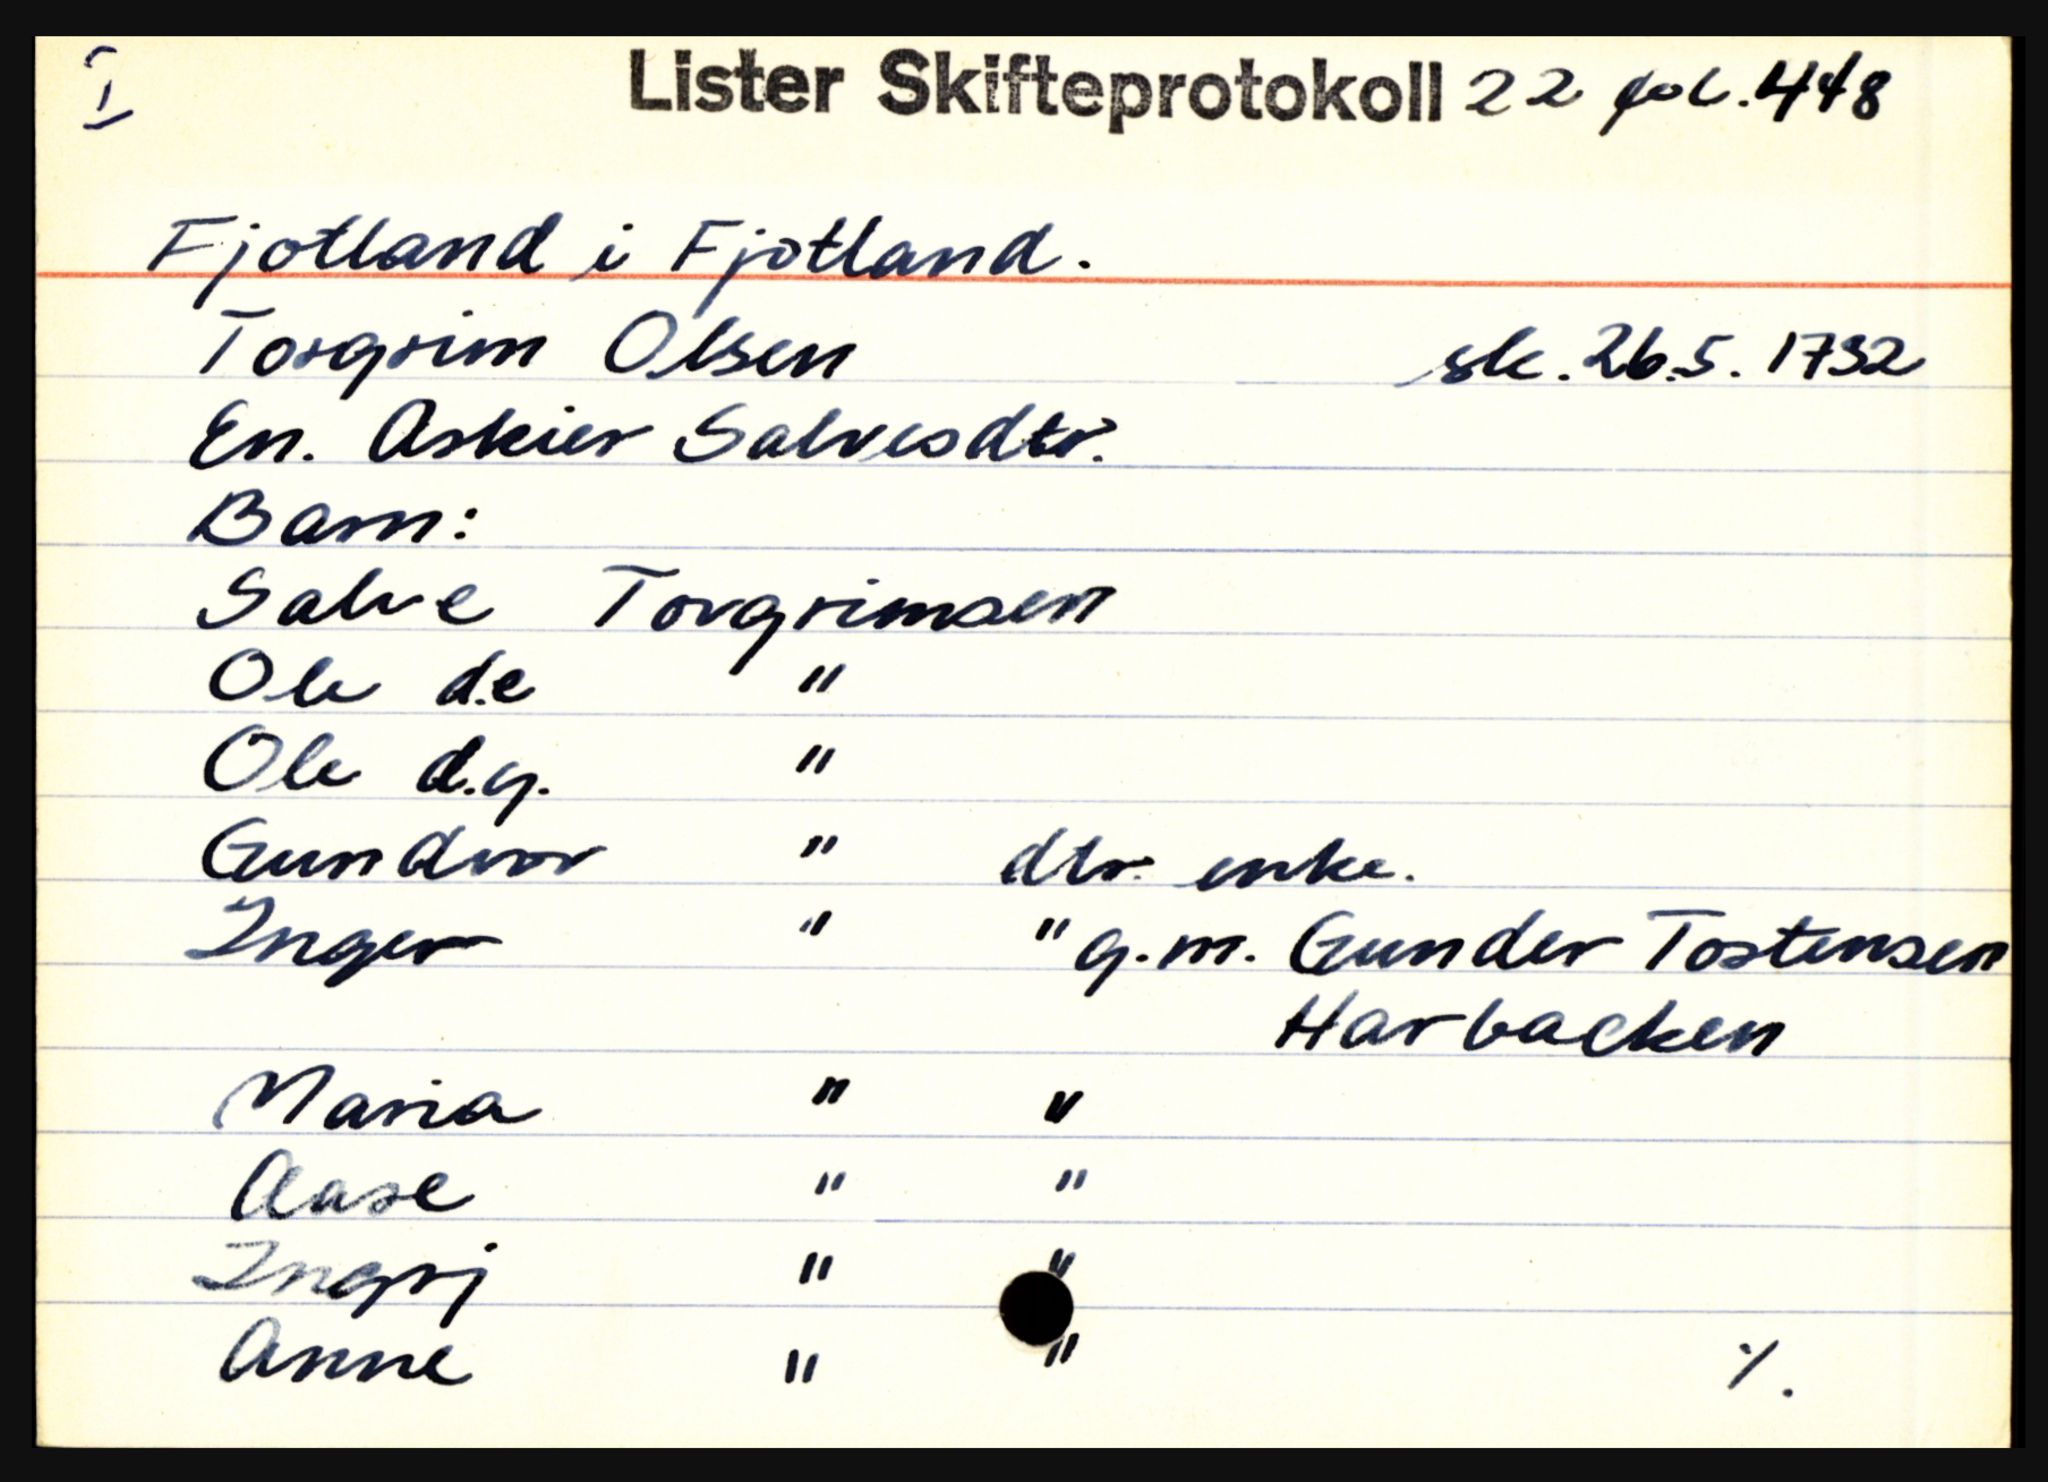 I
Lister Skifteprotokoll 22 fol. 448
Fjotland i Fjotland.
Torgrim Olsen sk. 26.5. 1732
En. Askier Salvesdtr.
Barn:
Salve Torgrimsen
Ole d.e "
Ole d.y. "
Gundvor " dtr. enke.
Inger " " g.m. Gunder Tostensen
Harbacken
Maria " "
Aase " "
Ingrj " "
Anne " "
·/.